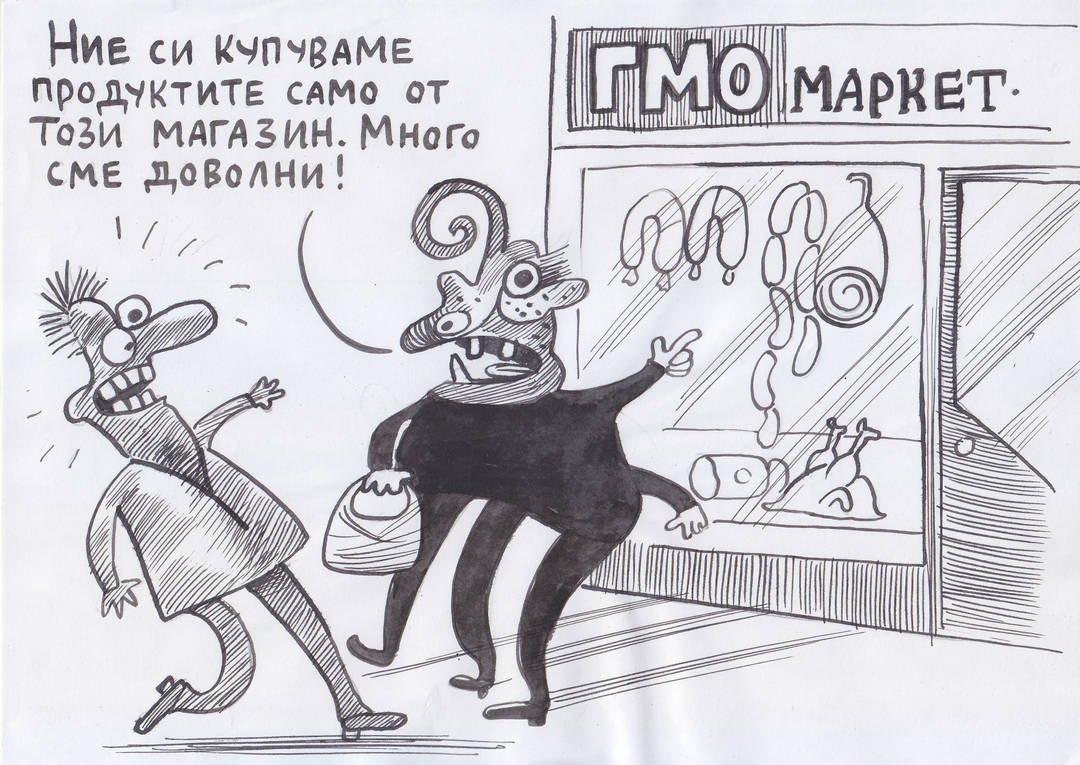 Ние си купуваме
продуктите само от
този магазин. Много
сме доволни!
ГМО маркет.